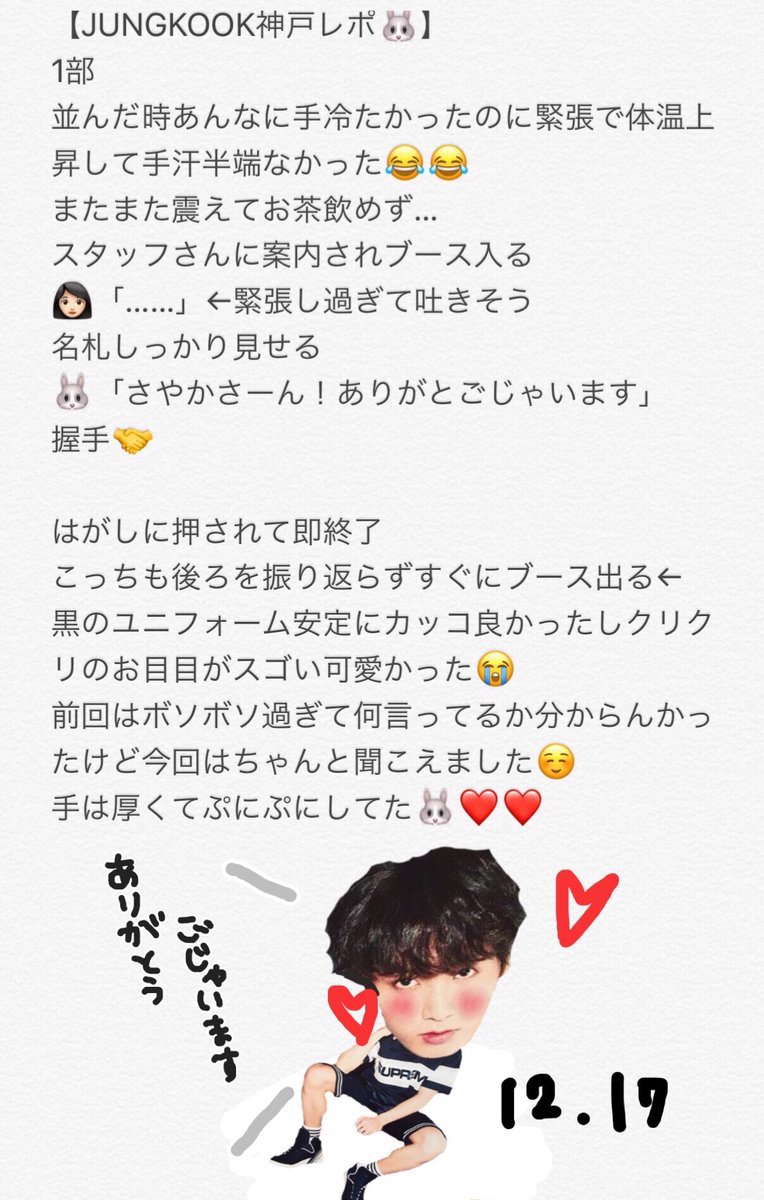 【JUNGKOOK神戸レポ🐰】
1部
並んだ時あんなに手冷たかったのに緊張で体温上
昇して手汗半端なかった😂😂
またまた震えてお茶飲めず...
スタッフさんに案内されブース入る
👩🏻「......」←緊張し過ぎて吐きそう
名札しっかり見せる
🐰「さやかさーん！ありがとごじゃいます」
握手🤝
はがしに押されて即終了
こっちも後ろを振り返らずすぐにブース出る←
黒のユニフォーム安定にカッコ良かったしクリク
リのお目目がスゴい可愛かった😭
前回はボソボソ過ぎて何言ってるか分からんかっ
たけど今回はちゃんと聞こえました☺️
手は厚くてぷにぷにしてた🐰❤️❤️
ありがとう
ごじゃいます
SUPREM
12.17